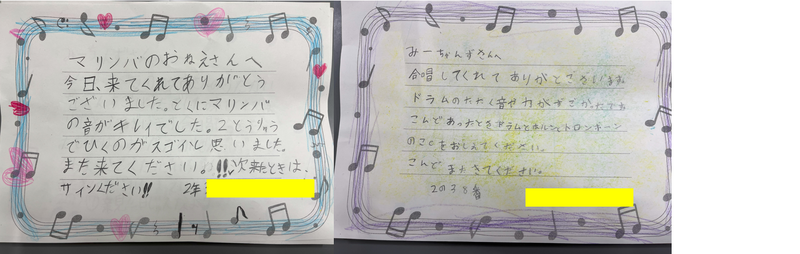 マリンバのおねえさんへ
今日、来てくれてありがとう
ございました。とくにマリンバ
の音がキレイでした。2とうりゅう
でひくのがスゴイし思いました。
また来てください。!!次来たときは、
サインください!! 2年
みーちゃんずさんへ
合唱してくれてありがとうございます。
ドラムのたたく音や力がすごかたです
こんどあったときドラムとホルンとトロンボーン
のことをおしえてください。
こんどまたきてください。
2の38番